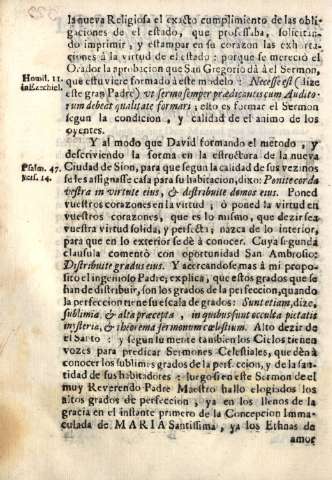 la nueva Religiosa el exacto cumplimiento de las obli-
gaciones de el estado, que professaba, solicitan-
do imprimir, y estampar en su corazon las exhorta-
ciones à la virtud de el estado: porque se mereciò el
Orador la aprobacion que San Gregorio dà à el Sermon,
que estuviere formado à este modelo: Necesse est (dize
este gran Padre) vt sermo semper prædicantis cum Audito-
rum debeat qualitate formari; esto es formar el Sermon
segun la condicion, y calidad de el animo de los
oyentes.
Homil. 11.
in Ezechiel.
Y al modo que David formando el metodo, y
descriviendo la forma en la estructura de la nueva
Ciudad de Sion, para que segun la calidad de sus vezinos
se les assignasse casa para su habitacion, dixo: Ponite corda
vestra in virtute eius, & distribuite domos eius. Poned
vuestros corazones en la virtud; ò poned la virtud en
vuestros corazones, que es lo mismo, que dezir sea
vuestra virtud solida, y perfecta; nazca de lo interior,
para que en lo exterior se dè à conocer. Cuya segunda
clausula comentò con oportunidad San Ambrosio:
Distribuite gradus eius. Y acercandose mas à mi propo-
sito el ingenioso Padre, explica, que estos grados que se
han de distribuir, son los grados de la perfeccion, quando
la perfeccion tiene su escala de grados: Sunt etiam, dize,
sublimia & alta præcepta, in quibus sunt occulta pietatis
mysteria, & theorema sermonum cælestium. Alto dezir de
el Santo: y segun su mente tambien los Cielos tienen
vozes para predicar Sermones Celestiales, que dèn à
conocer los sublimes grados de la perfeccion, y de la san-
tidad de sus habitadores: luego si en este Sermon de el
muy Reverendo Padre Maestro hallo elogiados los
altos grados de perfeccion, ya en los llenos de la
gracia en el instante primero de la Concepcion Imma-
culada de MARIA Santissima, ya los Ethnas de
amor
Psalm. 47.
vers. 14.